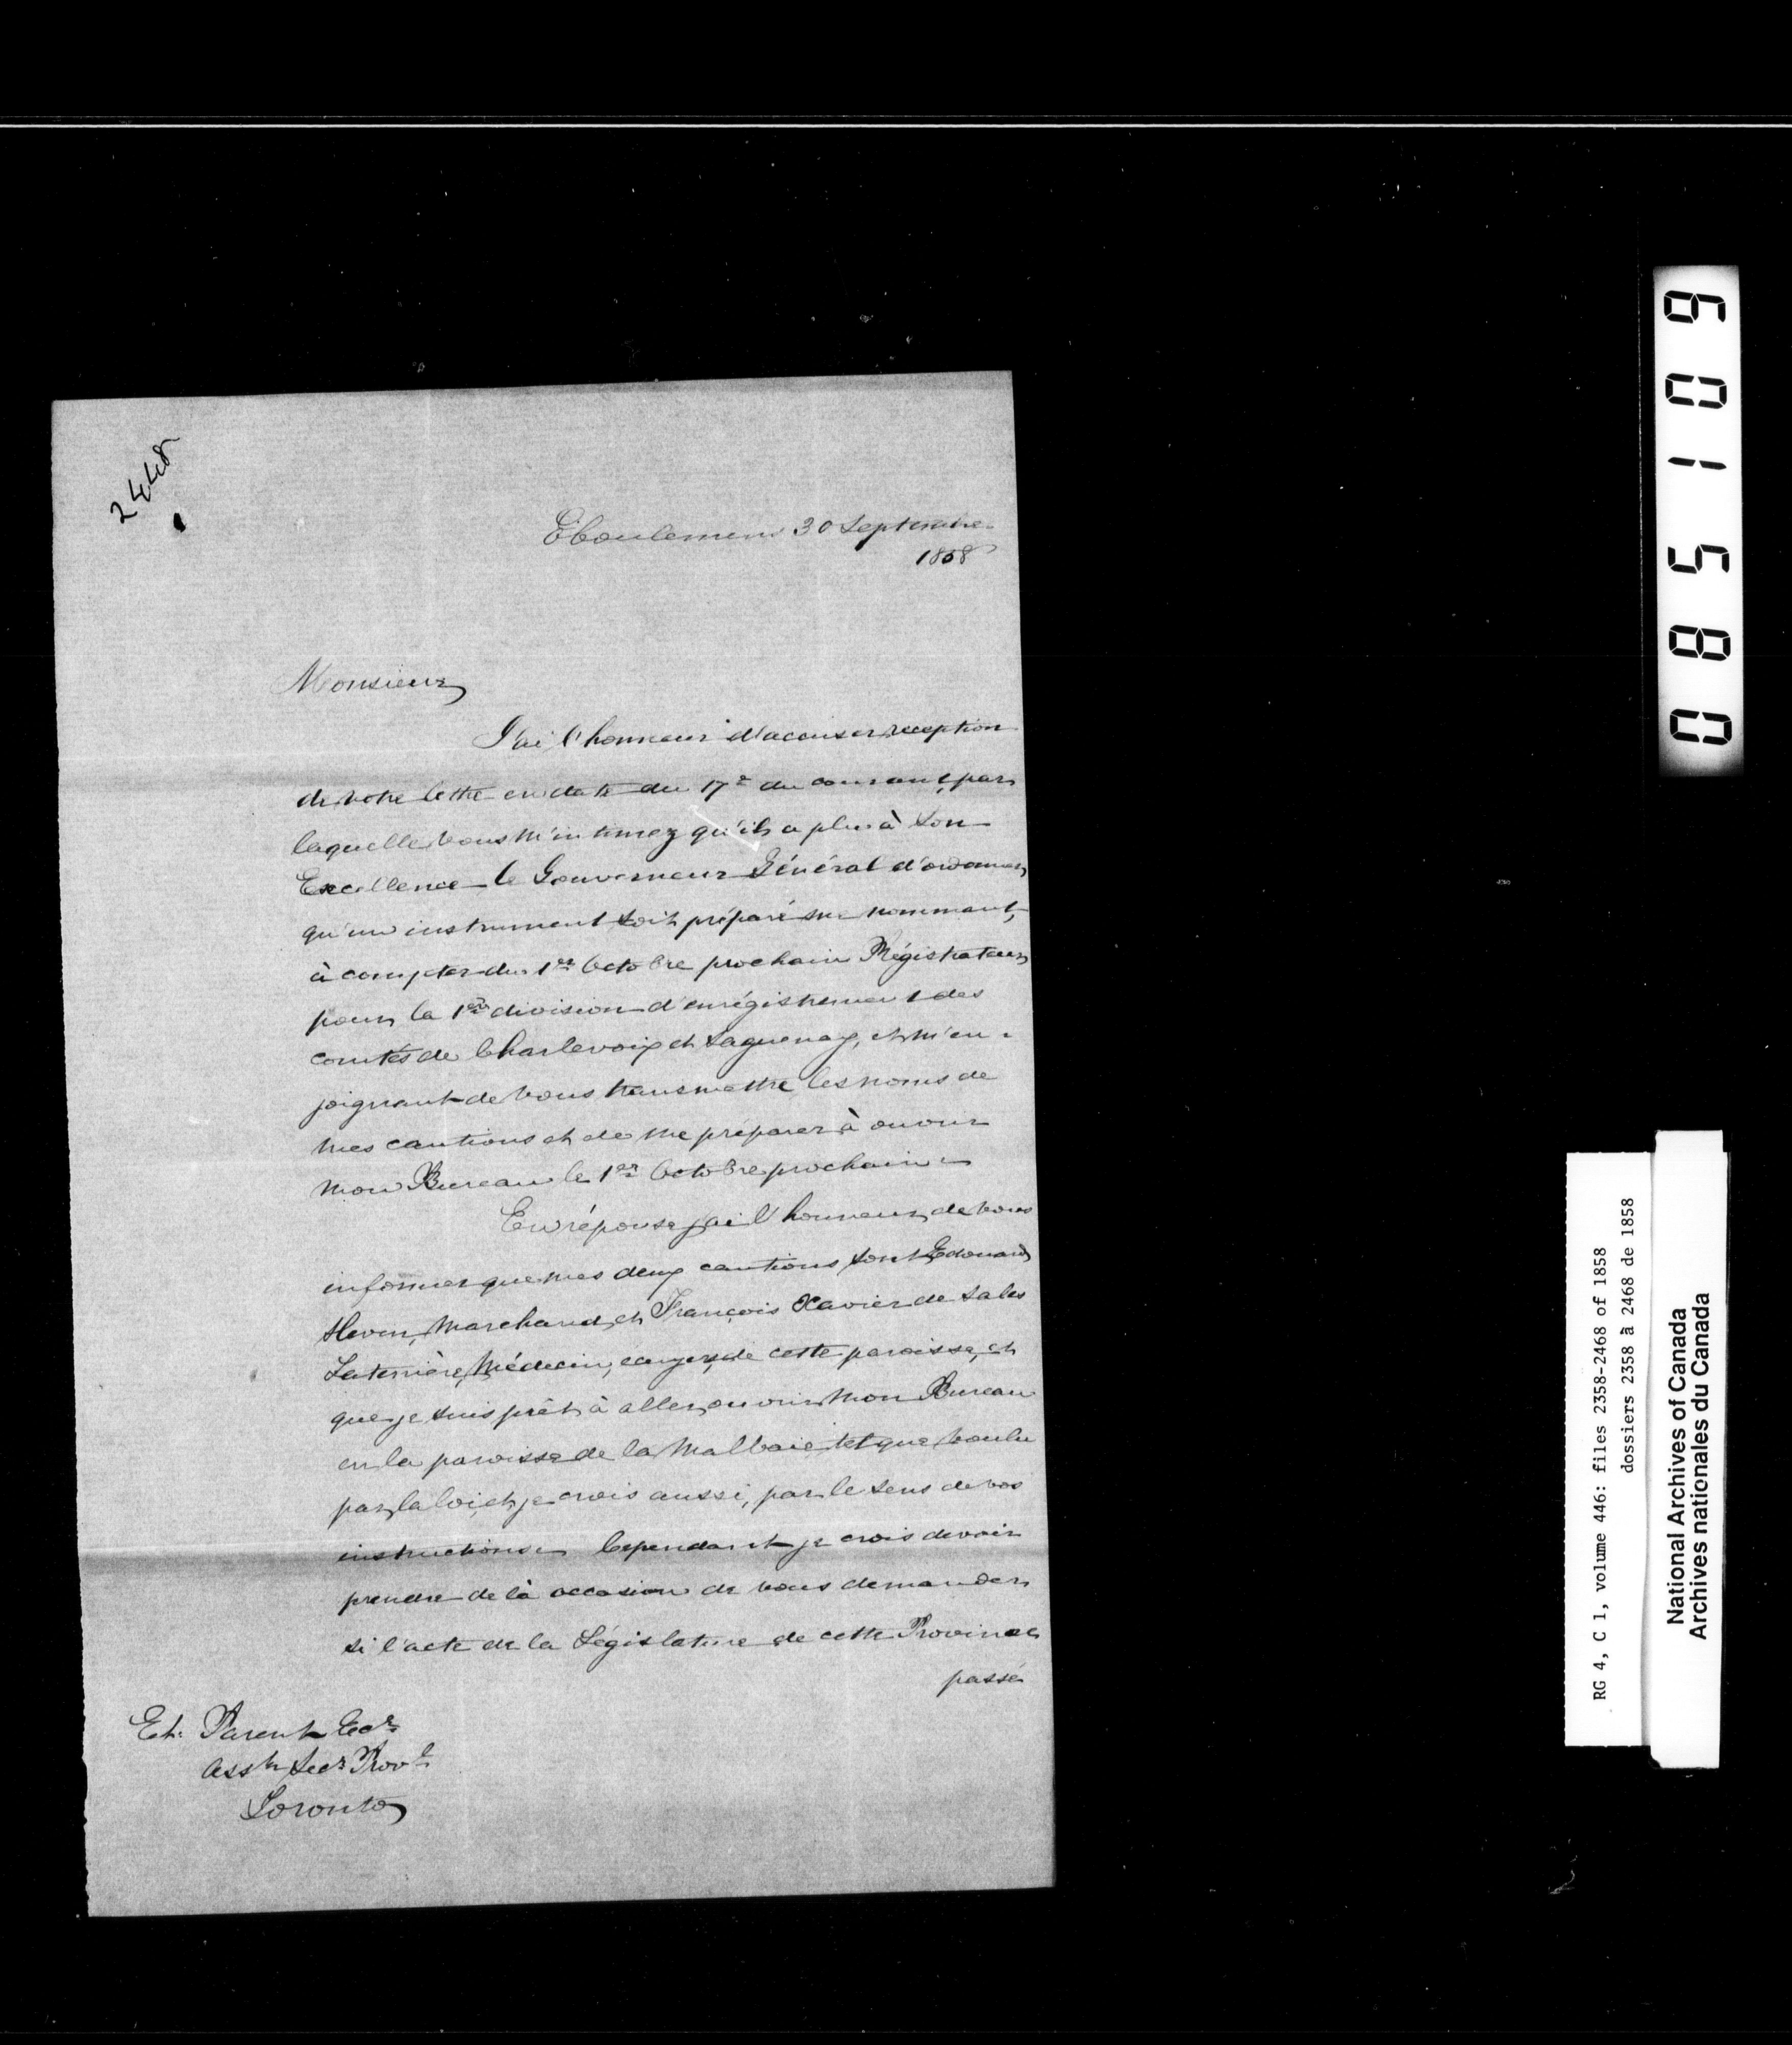 2448
Eboulemens 30 Septembre
1858
Monsieur
J'ai l'honneur d'accuser reception
de votre lettre en date du 17e du courant, par
laquelle vous m'intimez qu'il a plu à Son
Excellence le Gouverneur Général d'ordonner
qu'un instrument soit préparé me nommant,
à compter du 1er Octobre prochain Régistrateur
pour la 1ère division d'enrégistrement des
comtés de Charlevoix et Saguenay, et m'en-
joignant de vous transmettre les noms de
mes cautions et de me préparer à ouvrir
mon Bureau le 1er Octobre prochain.
En réponse j'ai l'honneur de vous
informer que mes deux cautions sont Edouard
Slevin, Marchand, et François Xavier de Sales
Laterrière, Médecin, écuyers, de cette paroisse, et
que je suis prêt à aller ouvrir mon Bureau
en la paroisse de la Malbaie tel que voulu
par la loi, et je crois aussi, par le sens de vos
instructions. Cependant je crois devoir
prendre de là occasion de vous demander
si l'acte de la Législature de cette Province
passé
Et. Parent Ecr
Asst Secr Provl
Toronto
085109
RG 4, C 1, volume 446: files 2358-2468 of 1858
dossiers 2358 à 2468 de 1858
National Archives of Canada
Archives nationales du Canada